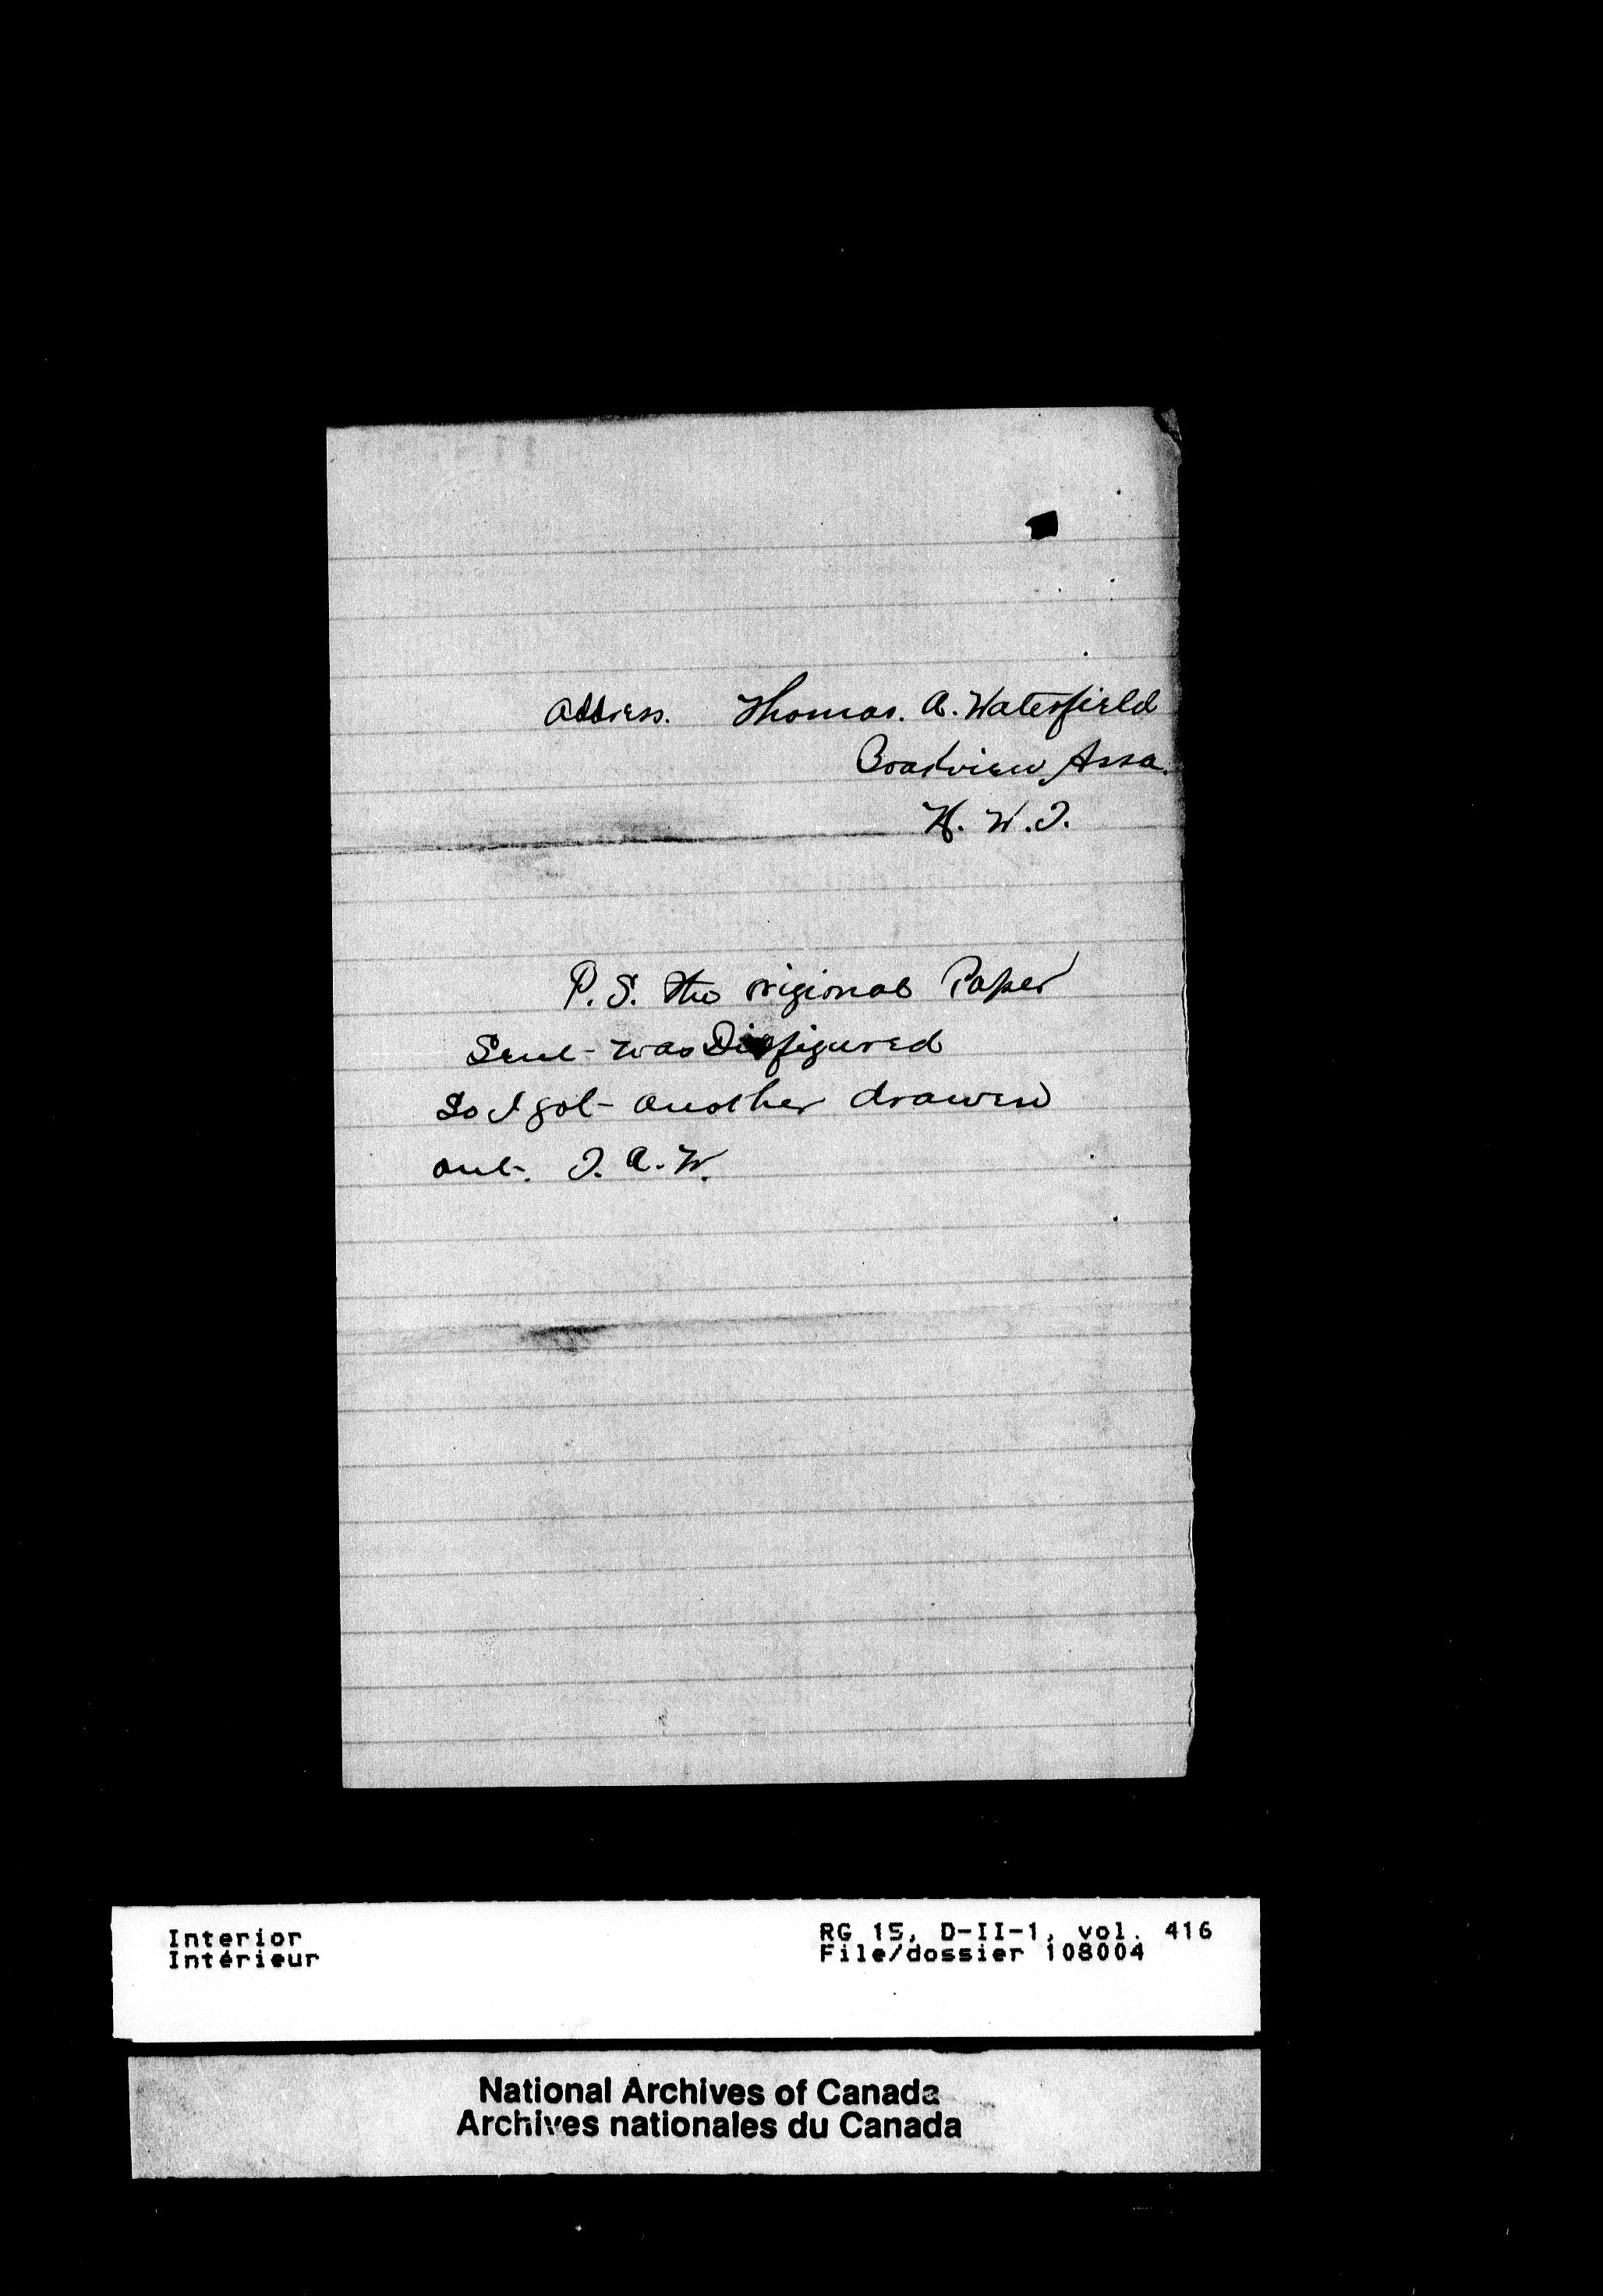 Address. Thomas. A. Waterfield
Broadview Assa.
N. W. T.
P. S. the origional Paper
Sent - was Disfigured
So I got - another drawen
out -. T. A. W.
Interior
Intérieur
RG 15, D-II-1, vol. 416
File/dossier 108004
National Archives of Canada
Archives nationales du Canada